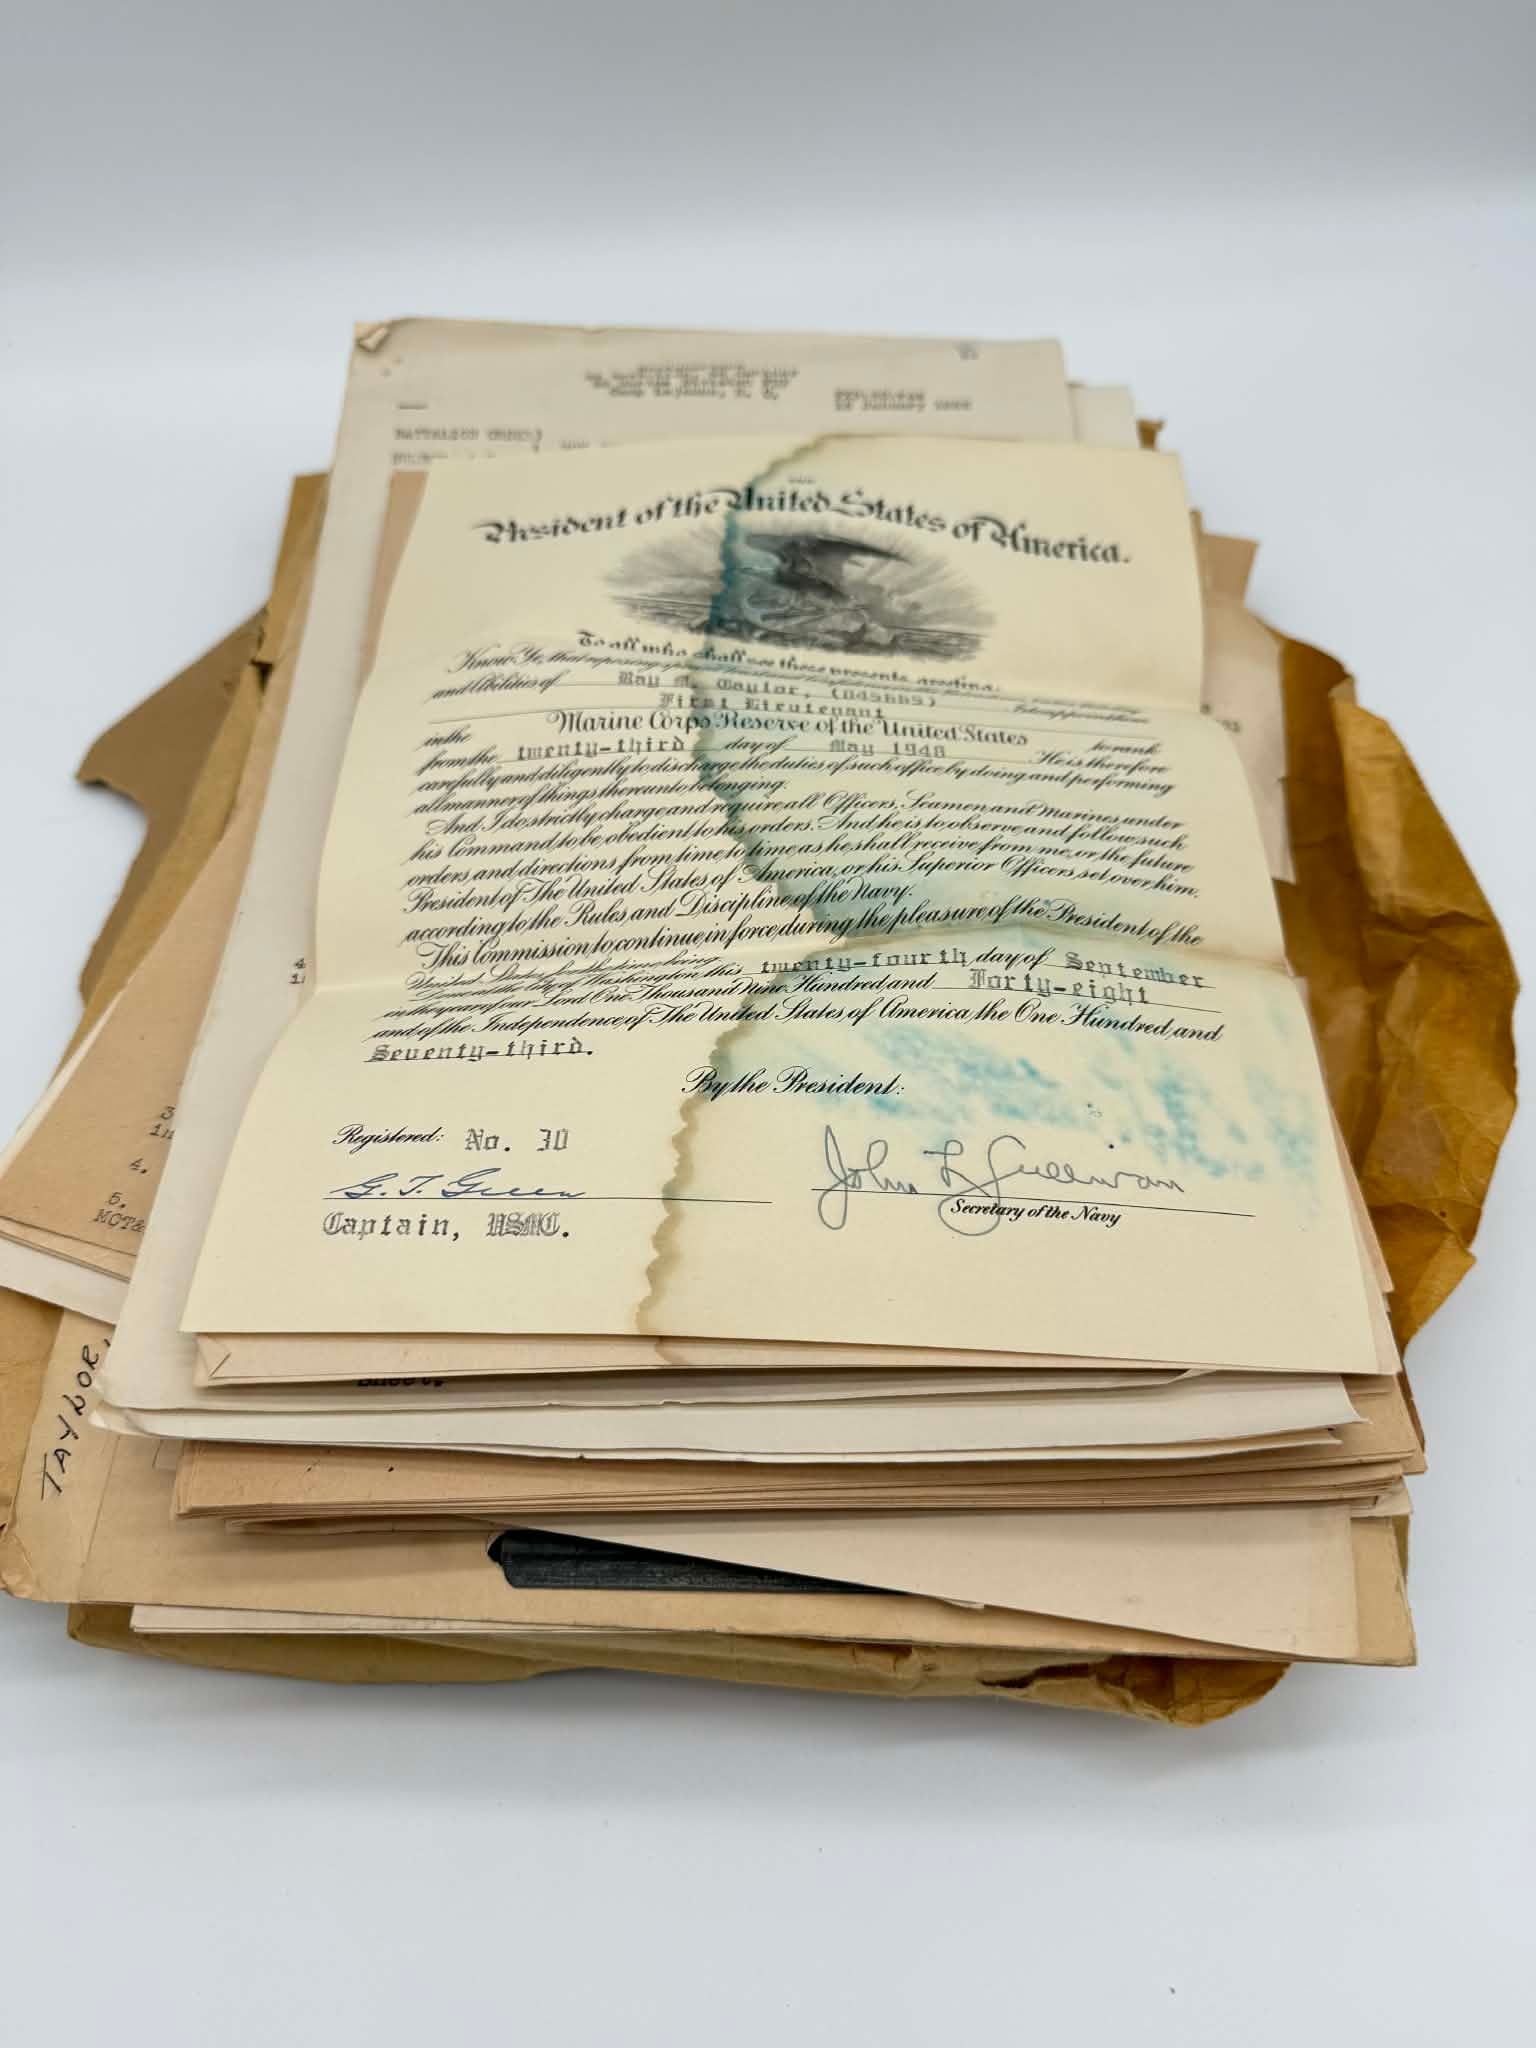 BATTALION ORDER)
President of the United States of America.
To all who shall see these presents, greeting:
Know Ye, that reposing
and Abilities of Ray M. Taylor,
First Lieutenant
in the Marine Corps Reserve of the United States to rank
from the twenty-third day of May 1948 He is therefore
carefully and diligently to discharge the duties of such office by doing and performing
all manner of things thereunto belonging.
And I do strictly charge and require all Officers, Seamen and Marines under
his Command to be obedient to his orders. And he is to observe and follow such
orders and directions from time to time as he shall receive from me, or the future
President of The United States of America, or his Superior Officers set over him,
according to the Rules and Discipline of the Navy.
This Commission to continue in force during the pleasure of the President of the
United States for the time being.
Done at the City of Washington this twenty-fourth day of September
in the year of our Lord One Thousand Nine Hundred and Forty-eight
and of the Independence of The United States of America, the One Hundred and
Seventy-third.
By the President:
Registered: No. 30
G. T. Green
Captain, USMC.
John L Sullivan
Secretary of the Navy
4.
5.
TAYLOR,